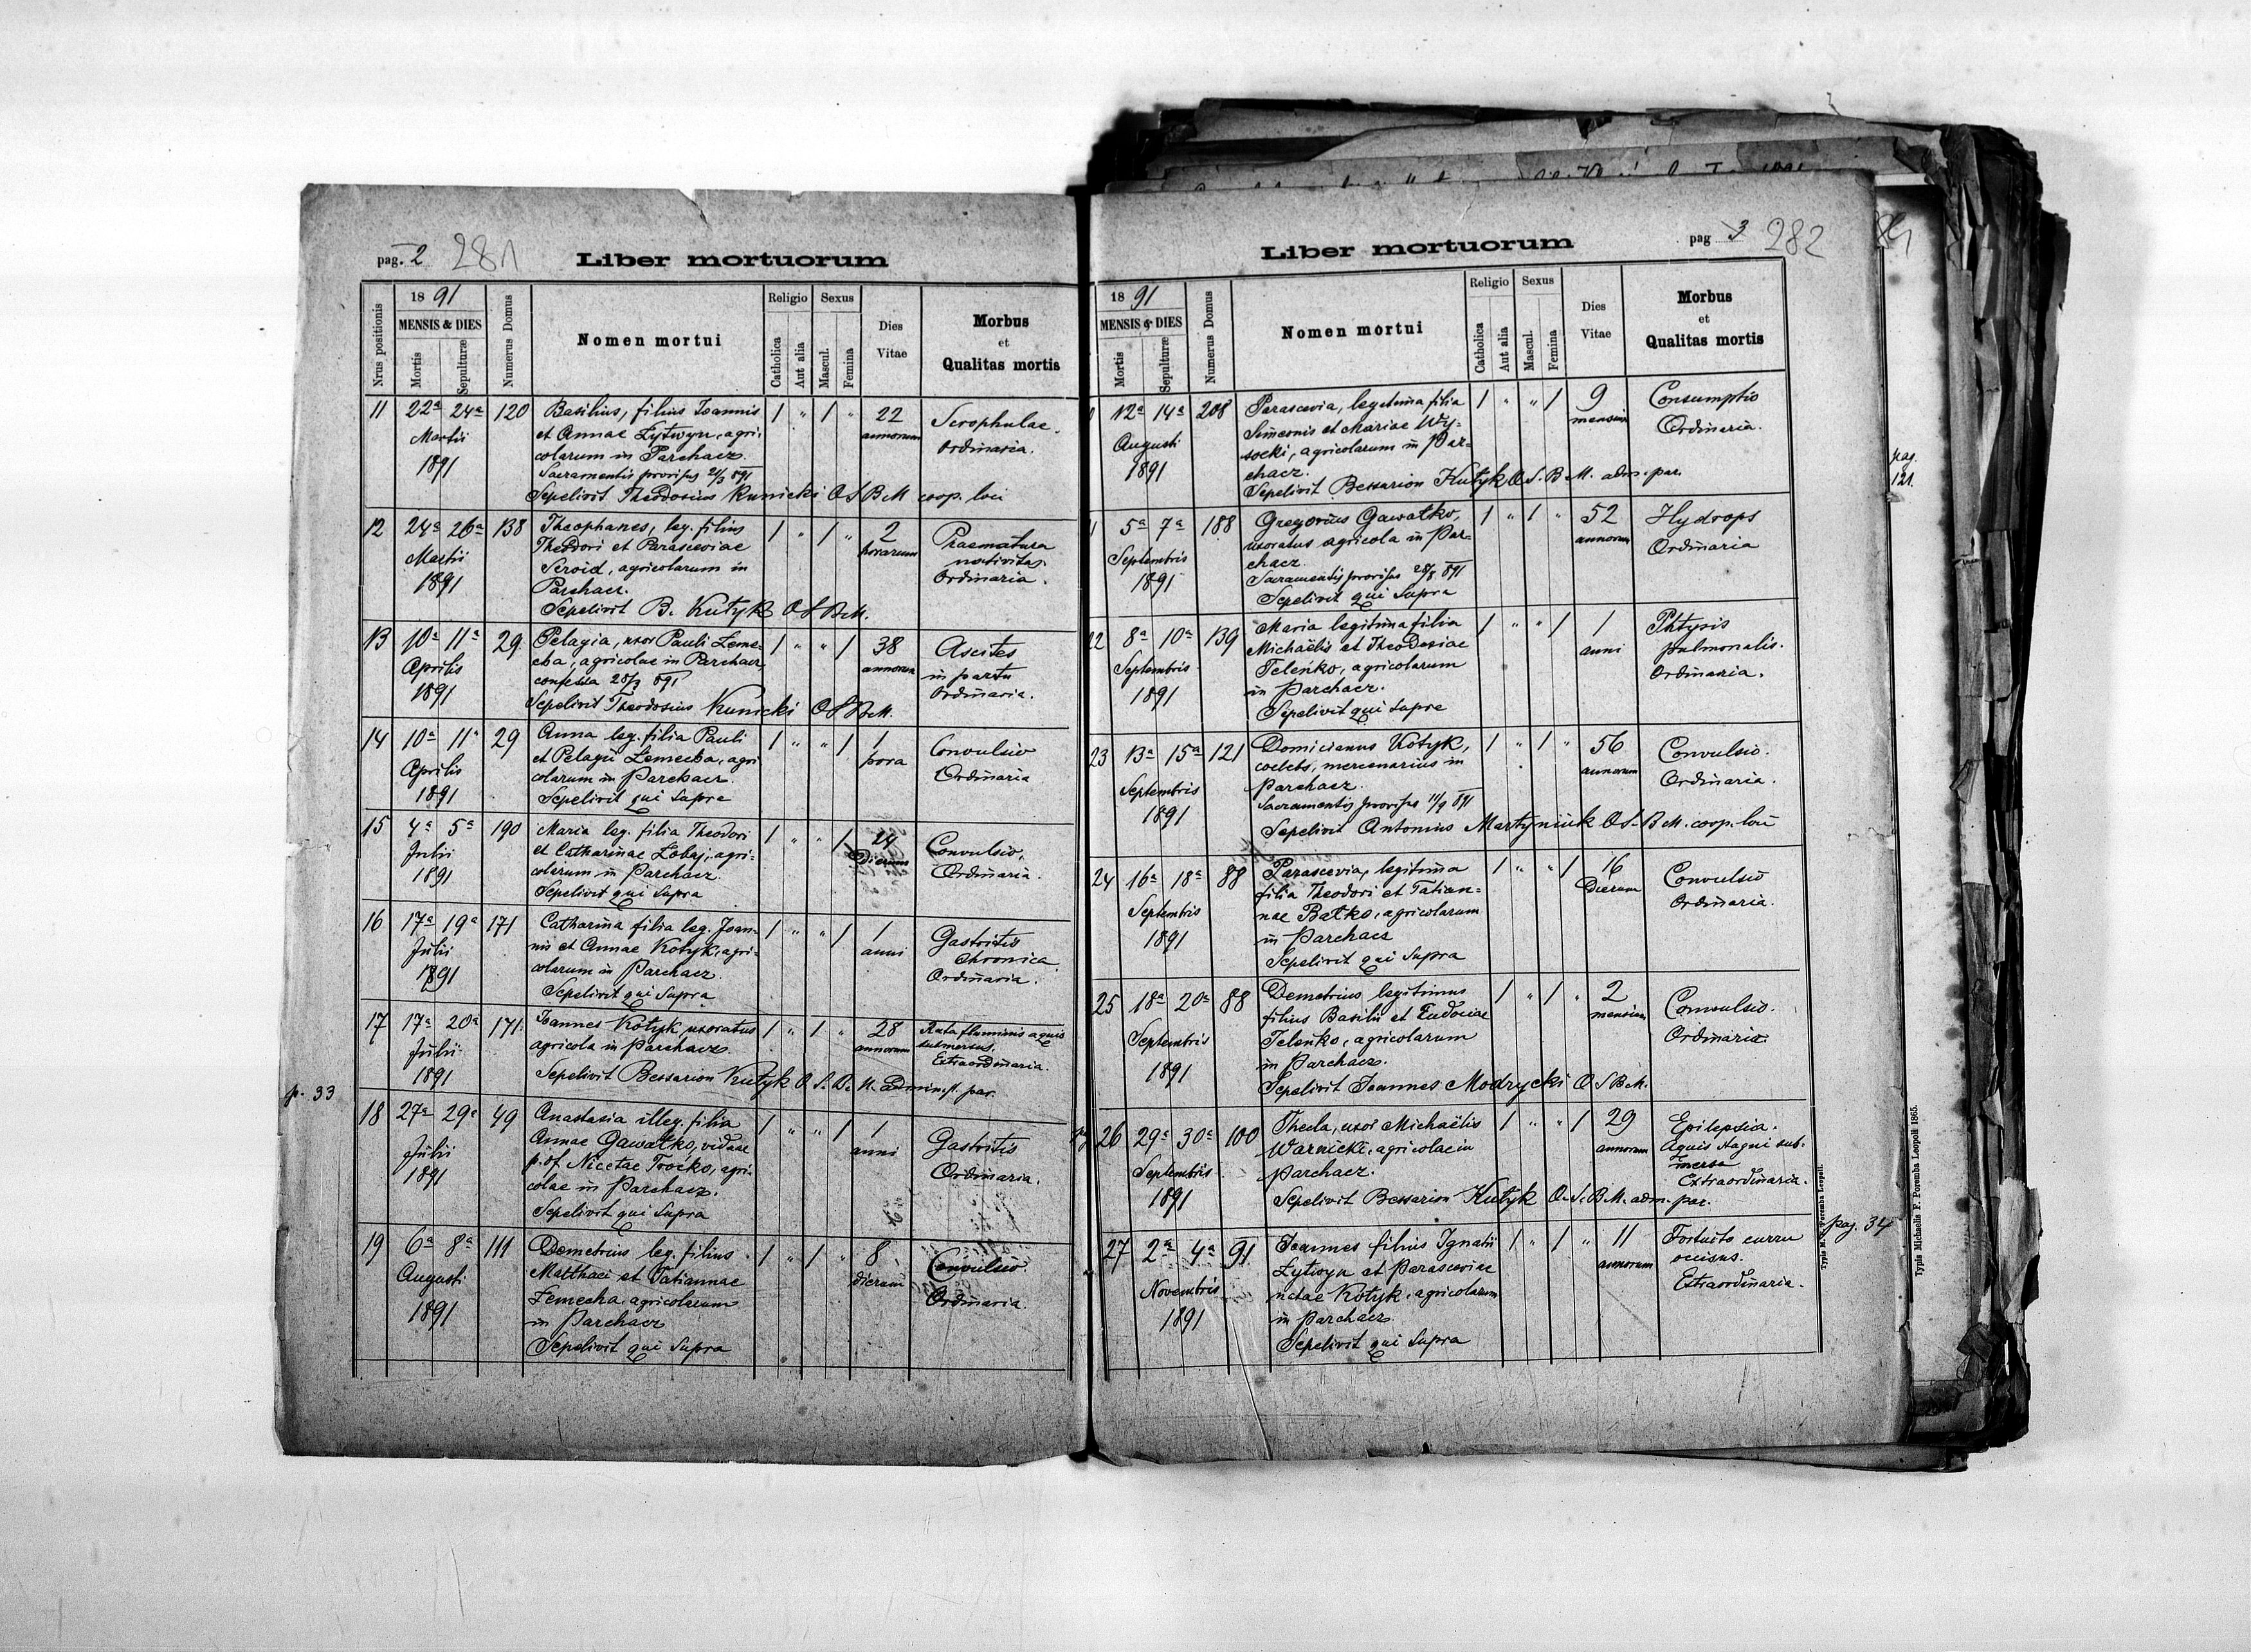 pag. 2 281
Liber mortuorum
Nrus positionis
18 91
MENSIS & DIES
Mortis
Sepulturæ
Numerus Domus
Nomen mortui
Religio
Catholica
Aut alia
Sexus
Mascul.
Femina
Dies
Vitae
Morbus
et
Qualitas mortis
11 22a 24a 120 Basilius, filius Ioannis 1 " 1 " 22 Scrophulae.
Martii et Annae Lytwyn, agri- annorum Ordinaria.
1891 colarum in Parchacz.
Sacramentis provisus 21/3 891
Sepelivit Theodosius Kunicki O S B M coop. loci
12 24a 26a 138 Theophanes, leg. filius 1 " 1 " 2 Praematura
Martii Theodori et Parasceviae horarum nativitas.
1891 Seroid, agricolarum in Ordinaria.
Parchacz.
Sepelivit B. Kutyk O S B M.
13 10a 11a 29 Pelagia, uxor Pauli Leme- 1 " " 1 38 Ascites
Aprilis cha, agricolae in Parchacz annorum in partu
1891 confessa 28/3 891 Ordinaria.
Sepelivit Theodosius Kunicki O S B M.
14 10a 11a 29 Anna leg. filia Pauli 1 " " 1 1 Convulsio
Aprilis et Pelagii Lemecha, agri hora Ordinaria
1891 colarum in Parchacz.
Sepelivit qui supra
15 4a 5a 190 Maria leg. filia Theodori 1 " " 1 24 Convulsio.
Julii et Catharinae Lobaj, agri- Dierum Ordinaria.
1891 colarum in Parchacz.
Sepelivit qui supra
16 17a 19a 171 Catharina filia leg. Joan- 1 " " 1 1 Gastritis
Julii nis et Annae Kotyk, agri- anni chronica
1891 colarum in Parchacz Ordinaria.
Sepelivit qui supra
17 17a 20a 171 Ioannes Kotyk uxoratus 1 " 1 " 28 Rata fluminis aquis
Julii agricola in Parchacz. annorum submersus.
1891 Extraordinaria.
Sepelivit Bessarion Kutyk O. S. B. M. administ. par.
p. 33
18 27a 29a 49 Anastasia illeg. filia 1 " " 1 1 Gastritis
Julii Annae Gawałko, viduae anni Ordinaria.
1891 p. def. Nicetae Troćko, agri-
colae in Parchacz.
Sepelivit qui supra
19 6a 8a 111 Demetrius leg. filius 1 " 1 " 8 Convulsio
Augusti Matthaei et Tatiannae dierum Ordinaria.
1891 Lemecha, agricolarum
in Parchacz
Sepelivit qui supra
pag 3 282
Liber mortuorum
18 91
MENSIS & DIES
Mortis
Sepulturæ
Numerus Domus
Nomen mortui
Religio
Catholica
Aut alia
Sexus
Mascul.
Femina
Dies
Vitae
Morbus
et
Qualitas mortis
12a 14a 208 Parascevia, legitima filia 1 " " 1 9 Consumptio
Augusti Simeonis et Mariae Wy- mensium Ordinaria.
1891 socki, agricolarum in Par-
chacz.
Sepelivit Bessarion Kutyk O. S. B. M. adm. par.
5a 7a 188 Gregorius Gawałko, 1 " 1 " 52 Hydrops
Septembris uxoratus agricola in Par- annorum Ordinaria
1891 chacz.
Sacramentis provisus 28/8 891
Sepelivit qui supra
22 8a 10a 139 Maria legitima filia 1 " " 1 1 Phtysis
Septembris Michaëlis et Theodosiae anni pulmonalis.
1891 Telenko, agricolarum Ordinaria.
in Parchacz.
Sepelivit qui supra
23 13a 15a 121 Domicianus Kotyk, 1 " 1 " 56 Convulsio.
Septembris coelebs, mercenarius in annorum Ordinaria.
1891 Parchacz.
Sacramentis provisus 11/9 891
Sepelivit Antonius Martyniuk O S. B M. coop. loci
24 16a 18a 88 Parascevia, legitima 1 " " 1 16 Convulsio
Septembris filia Theodori et Tatian- Dierum Ordinaria.
1891 nae Batko, agricolarum
in Parchacz
Sepelivit qui supra
25 18a 20a 88 Demetrius legitimus 1 " 1 " 2 Convulsio.
Septembris filius Basilii et Eudociae mensium Ordinaria
1891 Telenko, agricolarum
in Parchacz.
Sepelivit Joannes Modrycki O S B M.
26 29a 30a 100 Thecla, uxor Michaëlis 1 " " 1 29 Epilepsia.
Septembris Warnicki, agricolae in annorum Aquis stagni sub-
1891 Parchacz. mersa
Extraordinaria.
Sepelivit Bessarion Kutyk O. S. B. M. adm. par.
27 2a 4a 91 Joannes filius Ignatii 1 " 1 " 11 Fortuito curru
Novembris Lytwyn et Parasceviae annorum occisus.
1891 natae Kotyk, agricolarum Extraordinaria.
in Parchacz
Sepelivit qui supra
pag. 34
Typis M. F. Poremba Leopoli.
Typis Michaelis F. Poremba Leopoli 1865.
pag.
121.